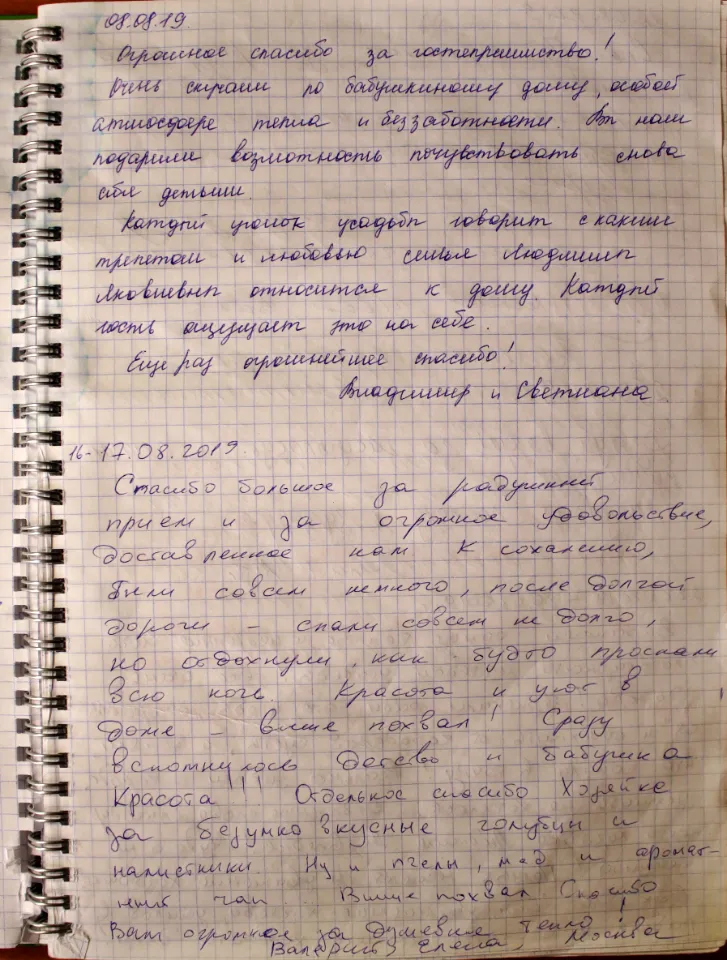 08.08.19.
Огромное спасибо за гостеприимство!
Очень скучали по бабушкиному дому, особой
атмосфере тепла и беззаботности. Вы нам
подарили возможность почувствовать снова
себя детьми.
Каждый уголок усадьбы говорит с каким
трепетом и любовью семья Людмилы
Яковлевны относится к дому. Каждый
гость ощущает это на себе.
Еще раз огромнейшее спасибо!
Владимир и Светлана
16-17.08.2019.
Спасибо большое за радушный
прием и за огромное удовольствие,
доставленное нам. К сожалению,
были совсем немного, после долгой
дороги – спали совсем не долго,
но отдохнули, как будто проспали
всю ночь. Красота и уют в
доме – выше похвал! Сразу
вспомнилось детство и бабушка
Красота!!! Отдельное спасибо Хозяйке
за безумно вкусные голубцы и
налистники. Ну и пчелы, мёд и аромат-
ный чай. Выше похвал Спасибо
Вам огромное за душевное тепло!
Елена, Москва